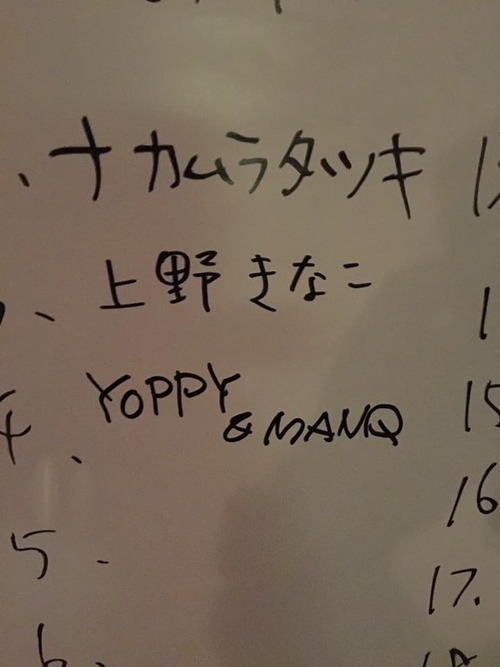 、ナカムラタツキ
、上野きなこ
4、YOPPY
& MANQ
15
5.
16
17.
6.